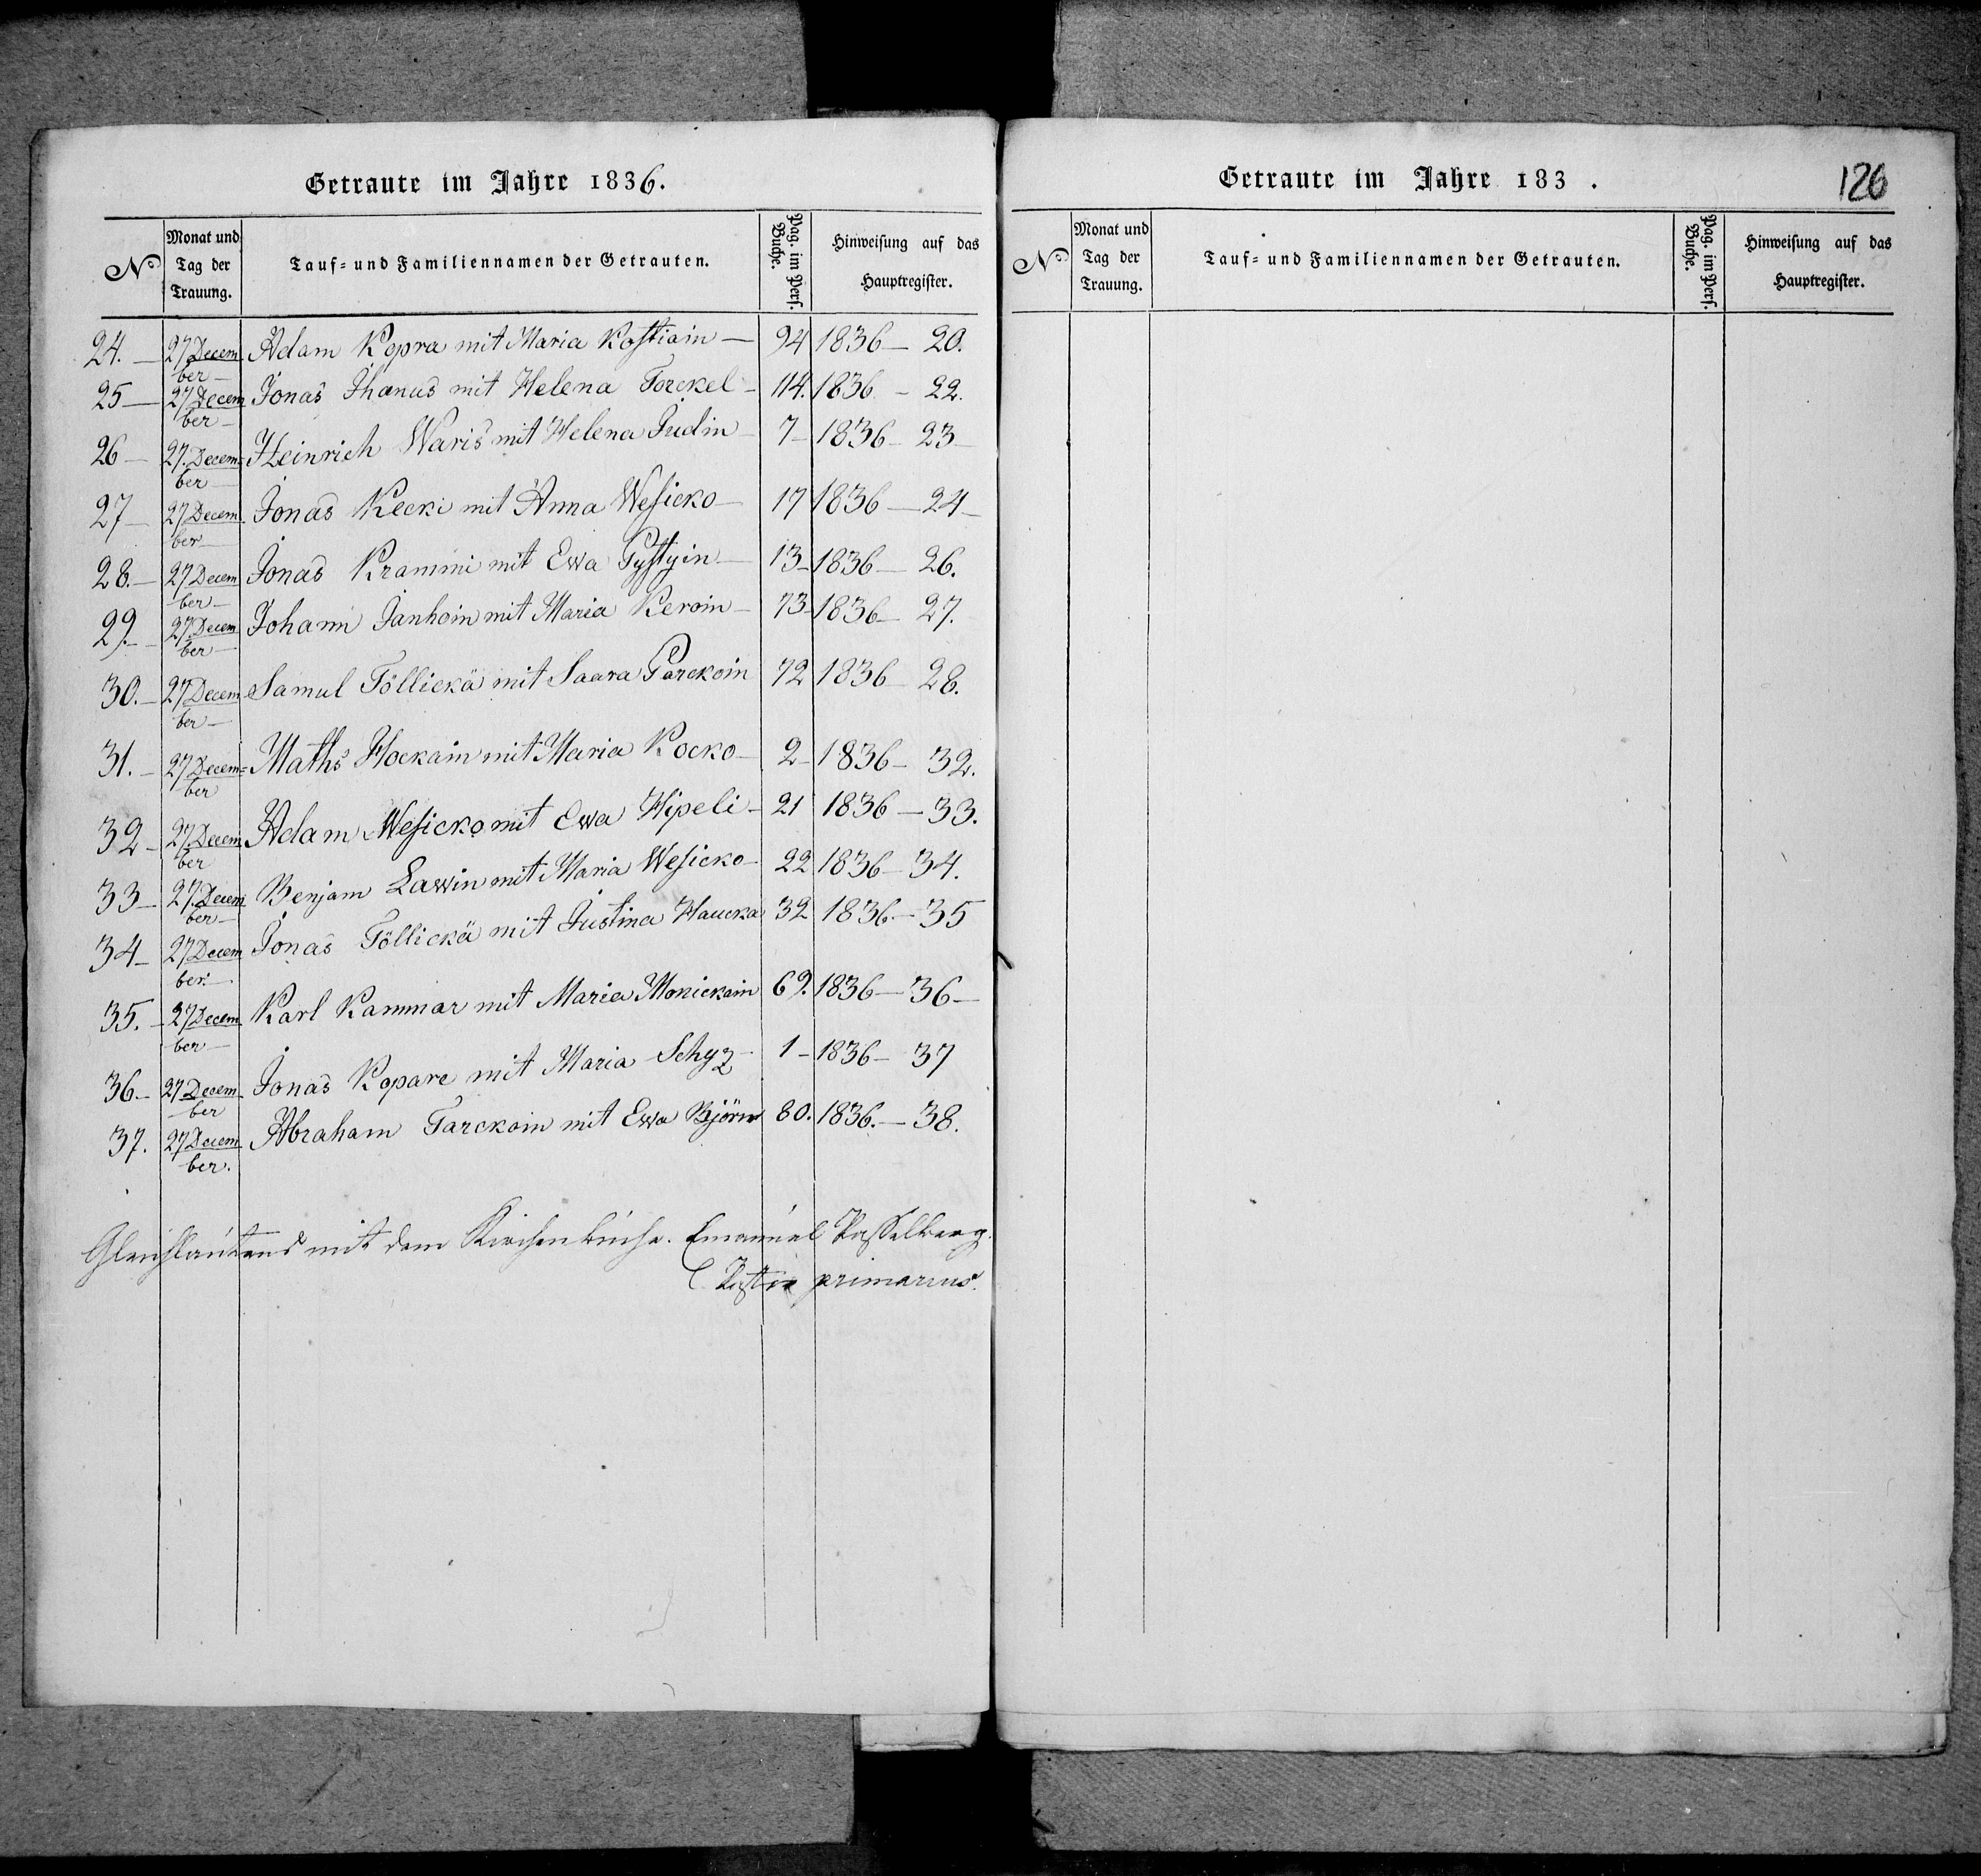 Getraute im Jahre 1836.
No
Monat und
Tag der
Trauung.
Tauf- und Familiennamen der Getrauten.
Pag. im Pers.
Buche.
Hinweisung auf das
Hauptregister.
24. — 27 Decem Adam Kopra mit Maria Kostiain — 94 1836 — 20.
ber —
25 — 27 Decem Jonas Ihanus mit Helena Torckel — 114. 1836 — 22.
ber —
26 — 27. Decem- Heinrich Waris mit Helena Judin — 7 — 1836 — 23 —
ber —
27 — 27 Decem Jonas Kecki mit Anna Wesicko — 17 1836 — 24 —
ber —
28. — 27 Decem Jonas Krammi mit Ewa Pystyin — 13 — 1836 — 26.
ber —
29. — 27. Decem Johann Janhoin mit Maria Keroin — 73 — 1836 — 27.
ber —
30. — 27 Decem Samul Töllickä mit Saara Parckoin 72 1836 28.
ber —
31. — 27 Decem= Maths Hockain mit Maria Kocko — 2 — 1836 — 32.
ber
32 — 27. Decem Adam Wesicko mit Ewa Hipeli — 21 1836 — 33.
ber
33 — 27. Decem Benjam Lawin mit Maria Wesicko — 22 1836 — 34.
ber —
34 — 27 Decem Jonas Töllickä mit Justina Haucka 32 1836. — 35
ber. —
35. — 27 Decem Karl Kammar mit Maria Monickain 69. 1836 — 36 —
ber —
36 — 27 Decem Jonas Kopare mit Maria Schyz — 1 — 1836 — 37
ber
37. 27 Decem Abraham Tarckoin mit Ewa Björn 80. 1836. — 38.
ber.
Gleichlautend mit dem Kirchenbuche. Emanuel
Pastor primarius.
Getraute im Jahre 183 .
126
No
Monat und
Tag der
Trauung.
Tauf- und Familiennamen der Getrauten.
Pag. im Pers.
Buche.
Hinweisung auf das
Hauptregister.